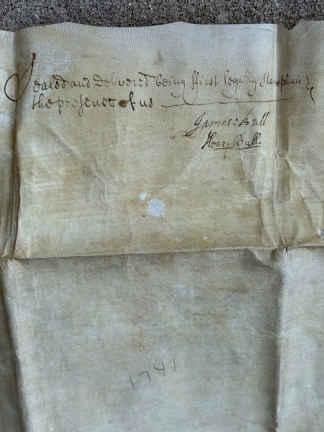 Sealed and delivered being first legally Stampt in
the presence of us
James Ball
Henry Ball
1741